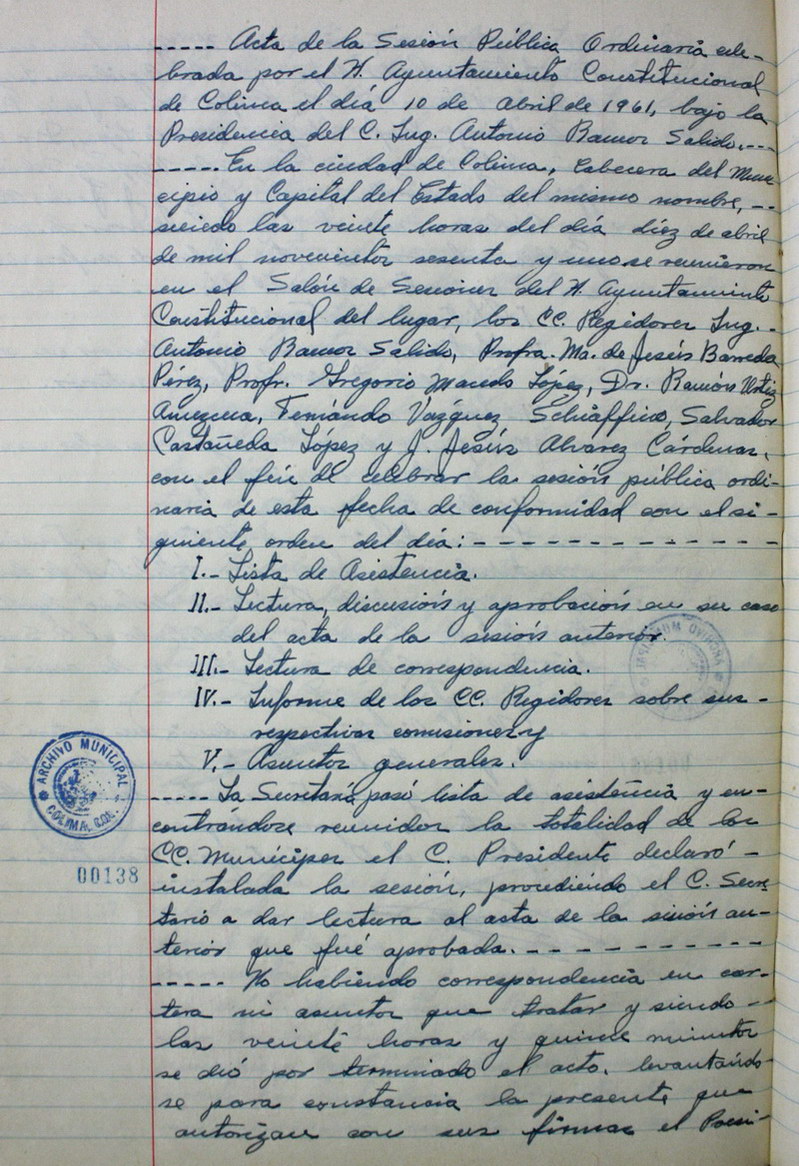 ----- Acta de la Sesión Pública Ordinaria cele-
brada por el H. Ayuntamiento Constitucional
de Colima el día 10 de abril de 1961, bajo la
Presidencia del C. Ing. Antonio Ramos Salido.---
----- En la ciudad de Colima, Cabecera del Muni-
cipio y Capital del Estado del mismo nombre, --
siendo las veinte horas del día diez de abril
de mil novecientos sesenta y uno se reunieron
en el Salón de Sesiones del H. Ayuntamiento
Constitucional del lugar, los CC. Regidores Ing.-
Antonio Ramos Salido, Profra. Ma. de Jesús Barreda
Pérez, Profr. Gregorio Macedo López, Dr. Ramón Ortiz
Amezcua, Fernándo Vazquez Schiaffino, Salvador
Castañeda López y J. Jesús Alvarez Cárdenas,
con el fin de celebrar la sesión pública ordi-
naria de esta fecha de conformidad con el si-
guiente orden del día: - - - - - - - - - - - - - -
I.- Lista de Asistencia.
II.- Lectura, discusión y aprobación en su caso
del acta de la sesión anterior.
III.- Lectura de correspondencia.
IV.- Informe de los CC. Regidores sobre sus -
respectivas comisiones y
V.- Asuntos generales.
----- La Secretaría pasó lista de asistencia y en-
contrándose reunidos la totalidad de los
CC. Munícipes el C. Presidente declaró -
instalada la sesión, procediendo el C. Secre-
tario a dar lectura al acta de la sesión an-
terior que fué aprobada. - - - - - - - - - - -
----- No habiendo correspondencia en car-
tera ni asuntos que tratar y siendo --
las veinte horas y quince minutos
se dió por terminado el acto, levantándo-
se para constancia la presente que
autorizan con sus firmas el Presi-
ARCHIVO MUNICIPAL
COLIMA, COL.
00138
ARCHIVO MUNICIPAL